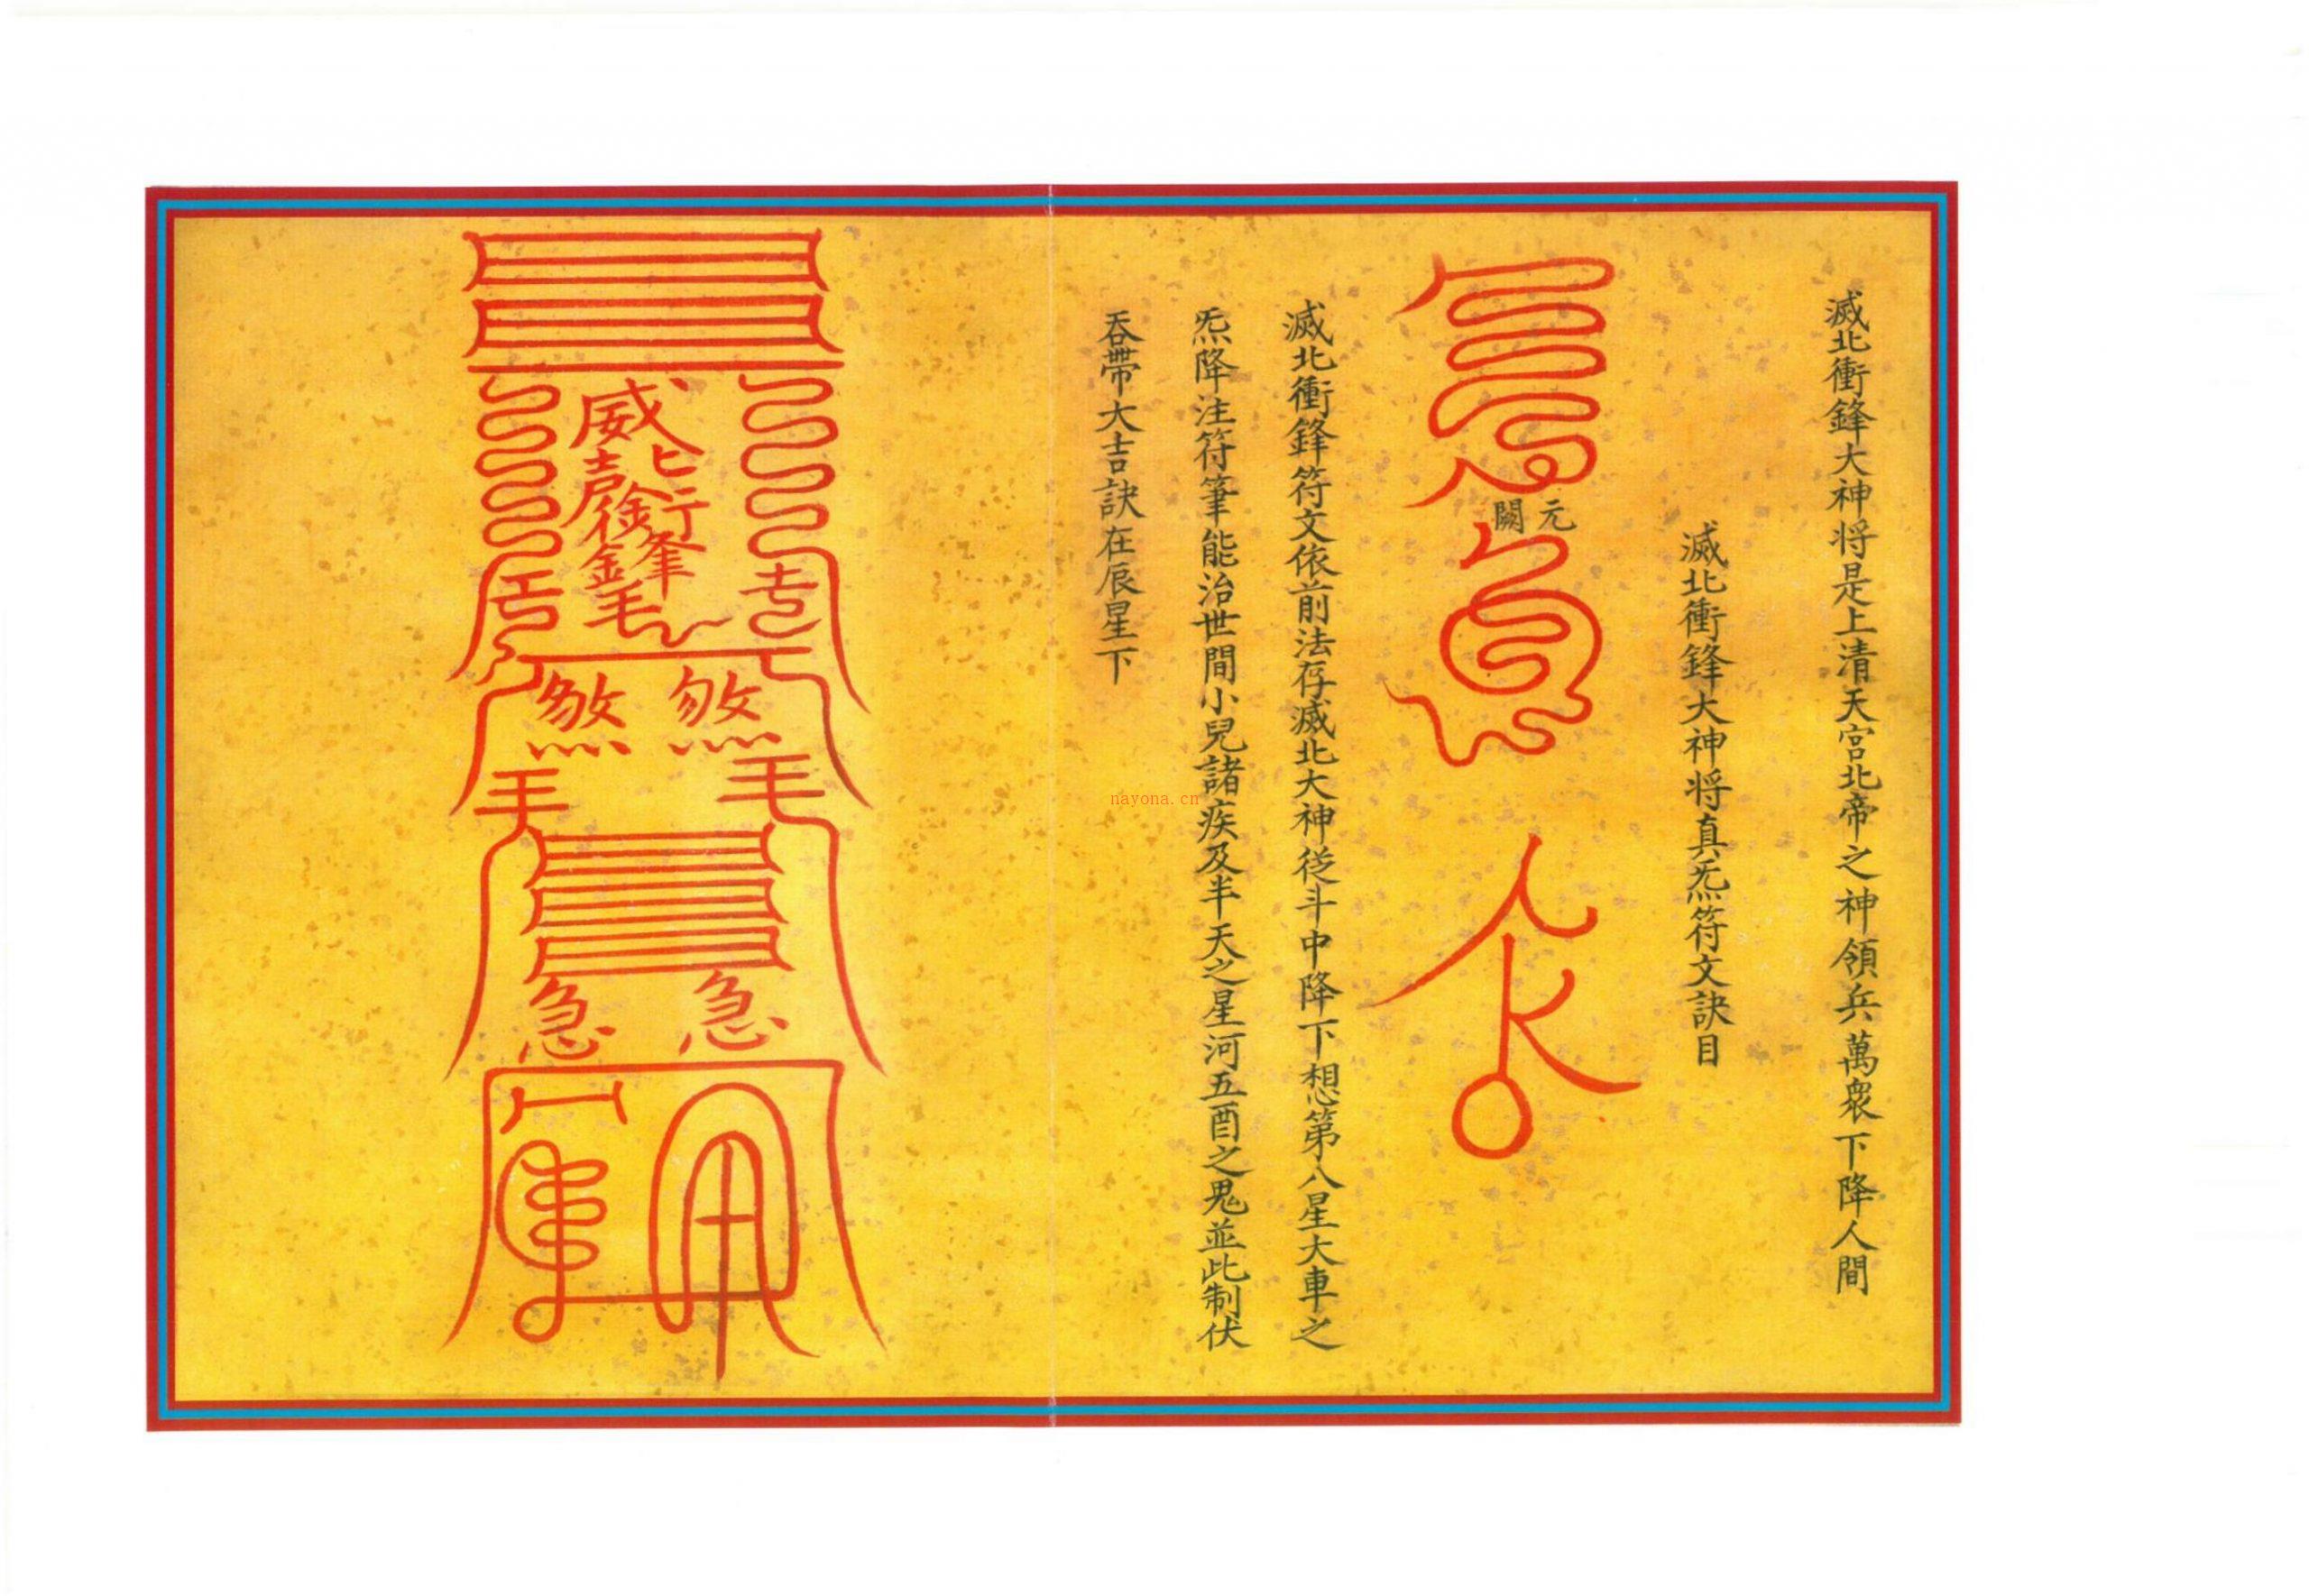 滅北衝鋒大神将是上清天宫北帝之神領兵萬衆下降人間
滅北衝鋒大神将真炁符文訣目
元
闕
滅北衝鋒符文依前法存滅北大神從斗中降下想第八星大車之
炁降注符筆能治世間小兒諸疾及半天之星河五酉之鬼並此制伏
吞帶大吉訣在辰星下
煞 煞
急 急
nayona.cn